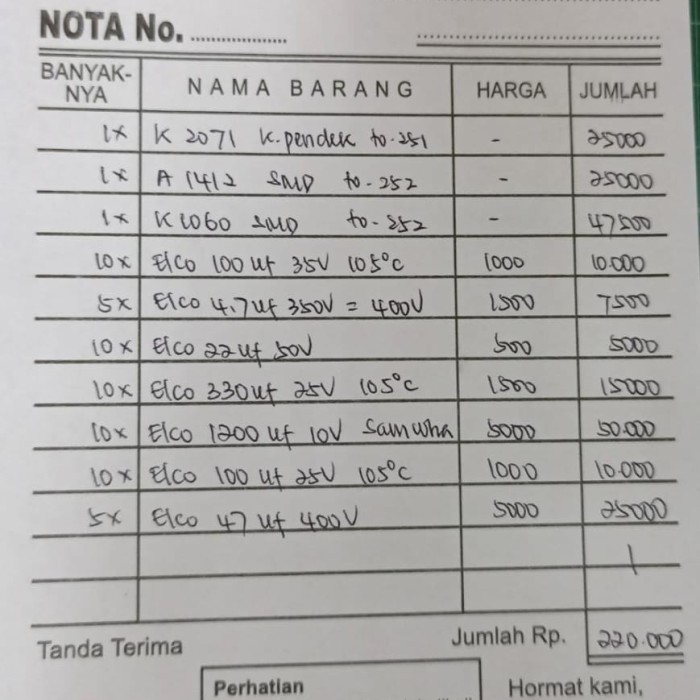 NOTA No. ....................
BANYAK-NYA NAMA BARANG HARGA JUMLAH
1x K 2071 K.pendek to-251 - 25000
1x A 1412 SMD to-252 - 25000
1x K1060 SMD to-252 - 47500
10x Elco 100 uf 35V 105°C 1000 10.000
5x Elco 4.7uf 350V = 400V 1500 7500
10x Elco 22uf 50V 500 5000
10x Elco 330uf 25V 105°C 1500 15000
10x Elco 1200 uf 10V Samwha 5000 50.000
10x Elco 100 uf 25V 105°C 1000 10.000
5x Elco 47 uf 400V 5000 25000
Tanda Terima Jumlah Rp. 220.000
Perhatian Hormat kami,